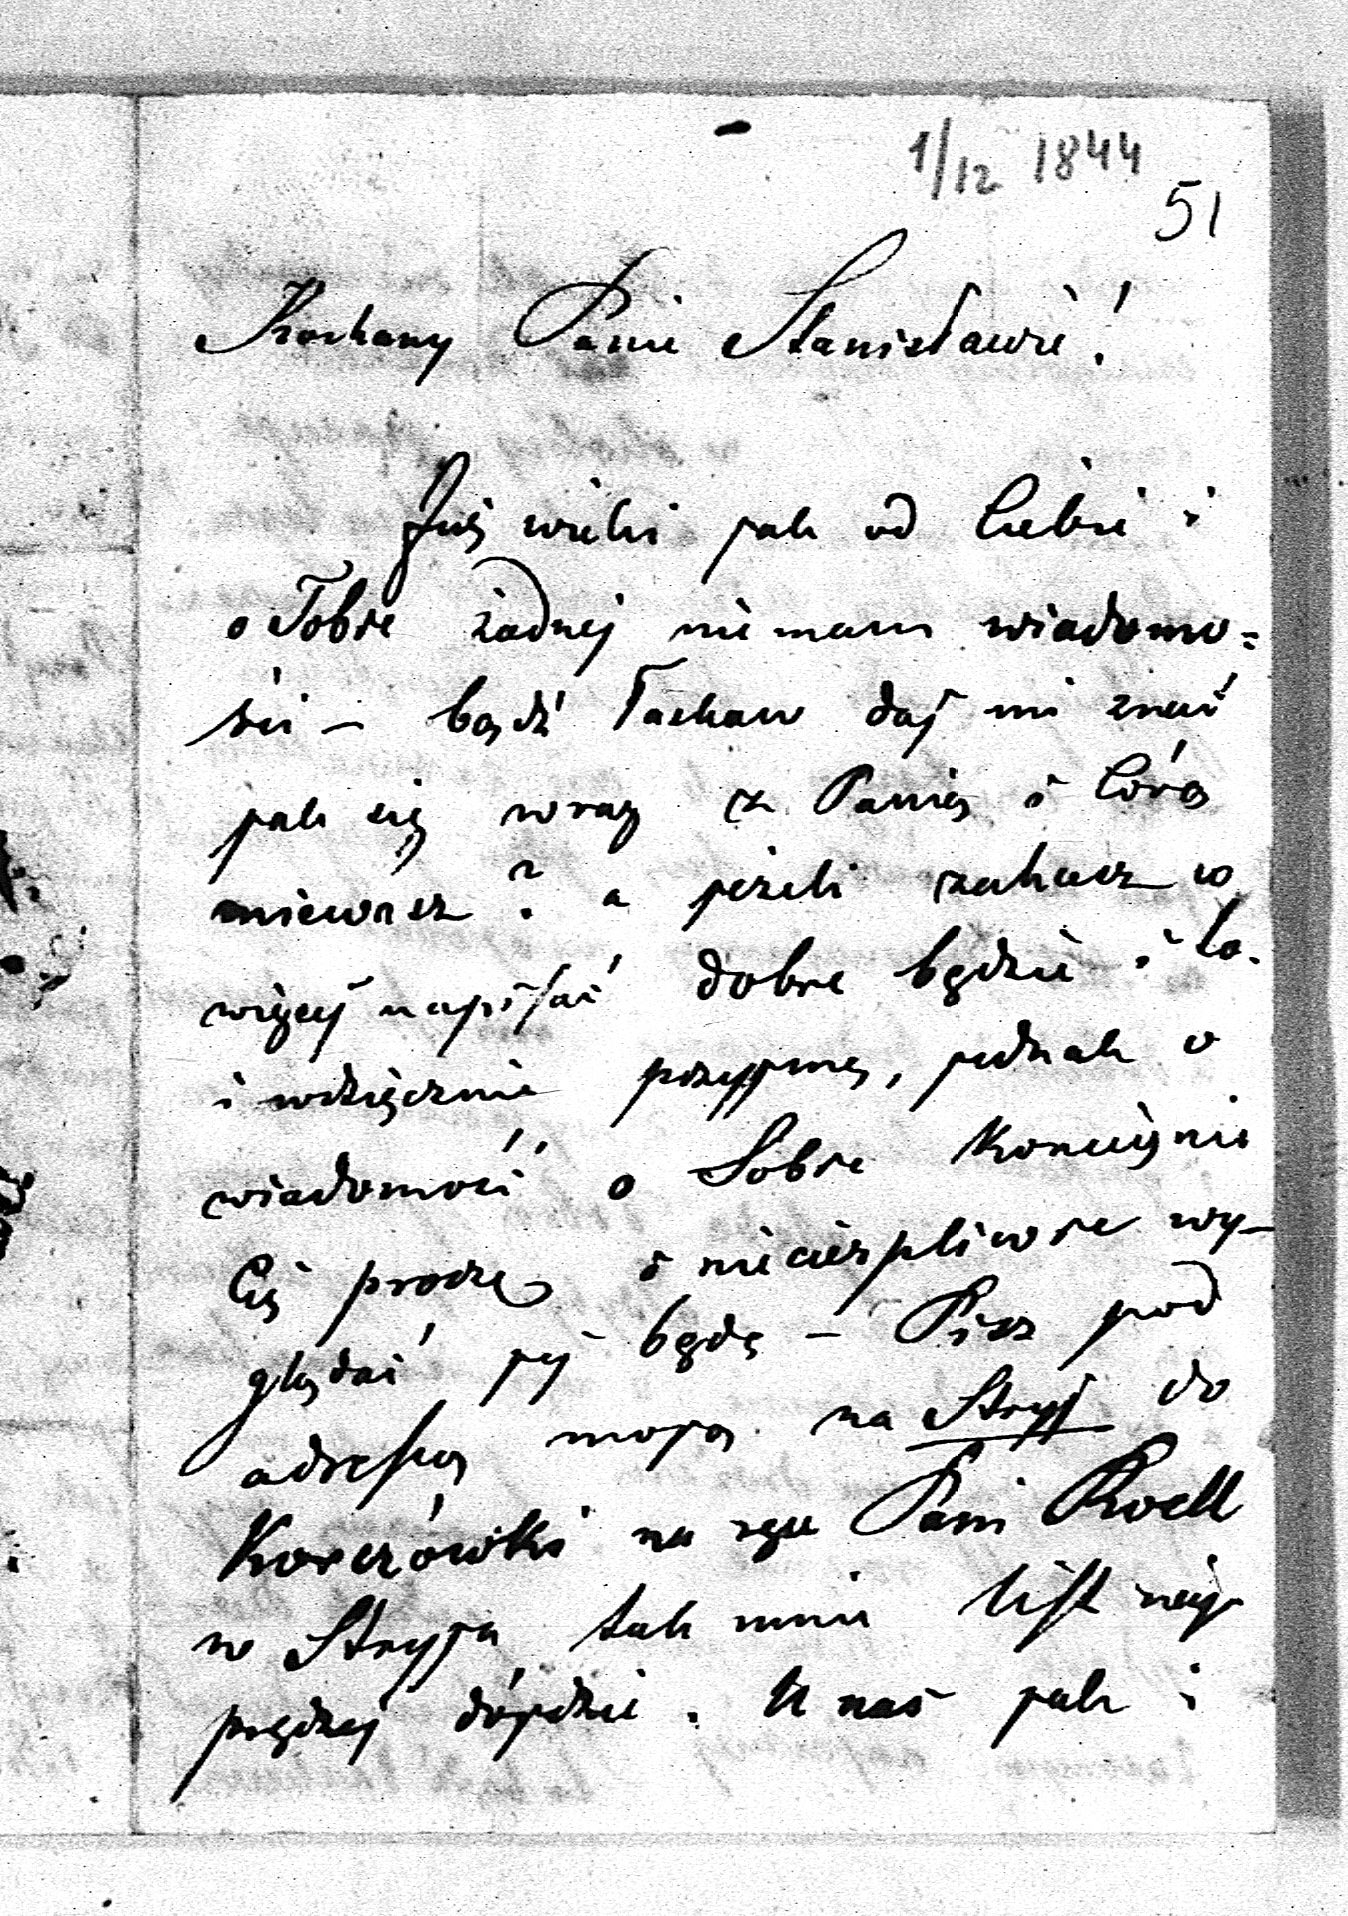 1/12 1844
51
Kochany Panie Stanisławie!
Już wieki jak od Ciebie i
o Tobie żadnej nie mam wiadomo=
ści – bądź łaskaw daj mi znać
jak się wraz z Panią i Córą
miewasz? a jeżeli zechcesz co
więcej napisać dobre będzie i to.
i wdzięcznie przyjmę, jednak o
wiadomość o Sobie koniecznie
Cię proszę i niecierpliwie wy–
glądać jej będę – Pisz pod
adresą moją na Stryj do
Korczówki na ręce Pani Roell
w Stryju tak mnie list naj
prędzej dójdzie. U nas jak i